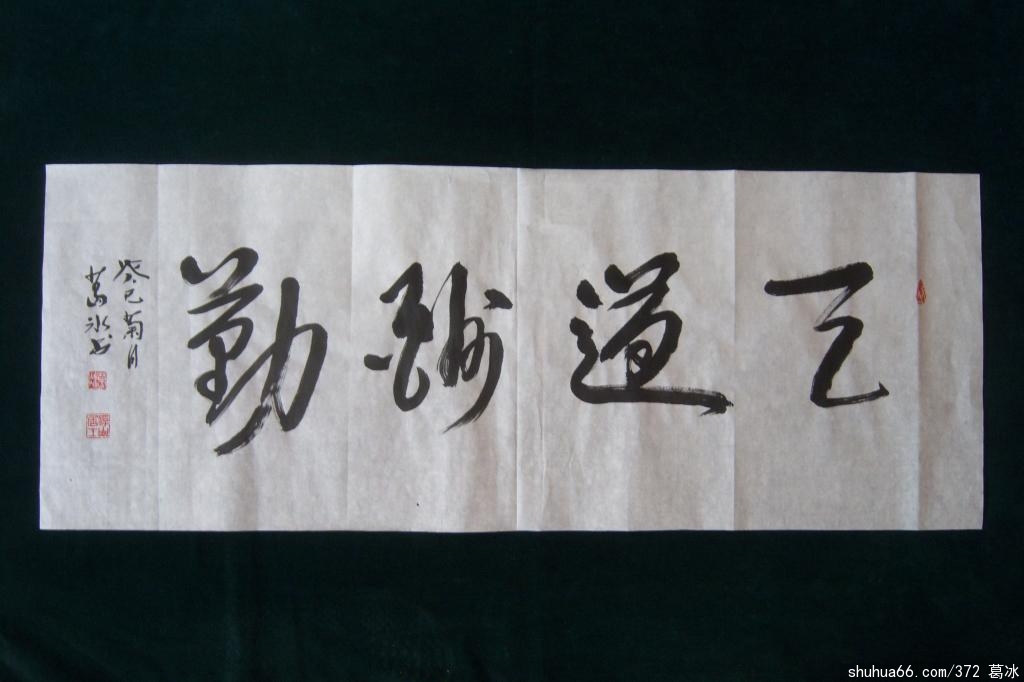 天道酬勤
癸巳菊月
葛冰书
shuhua66.com/372 葛冰